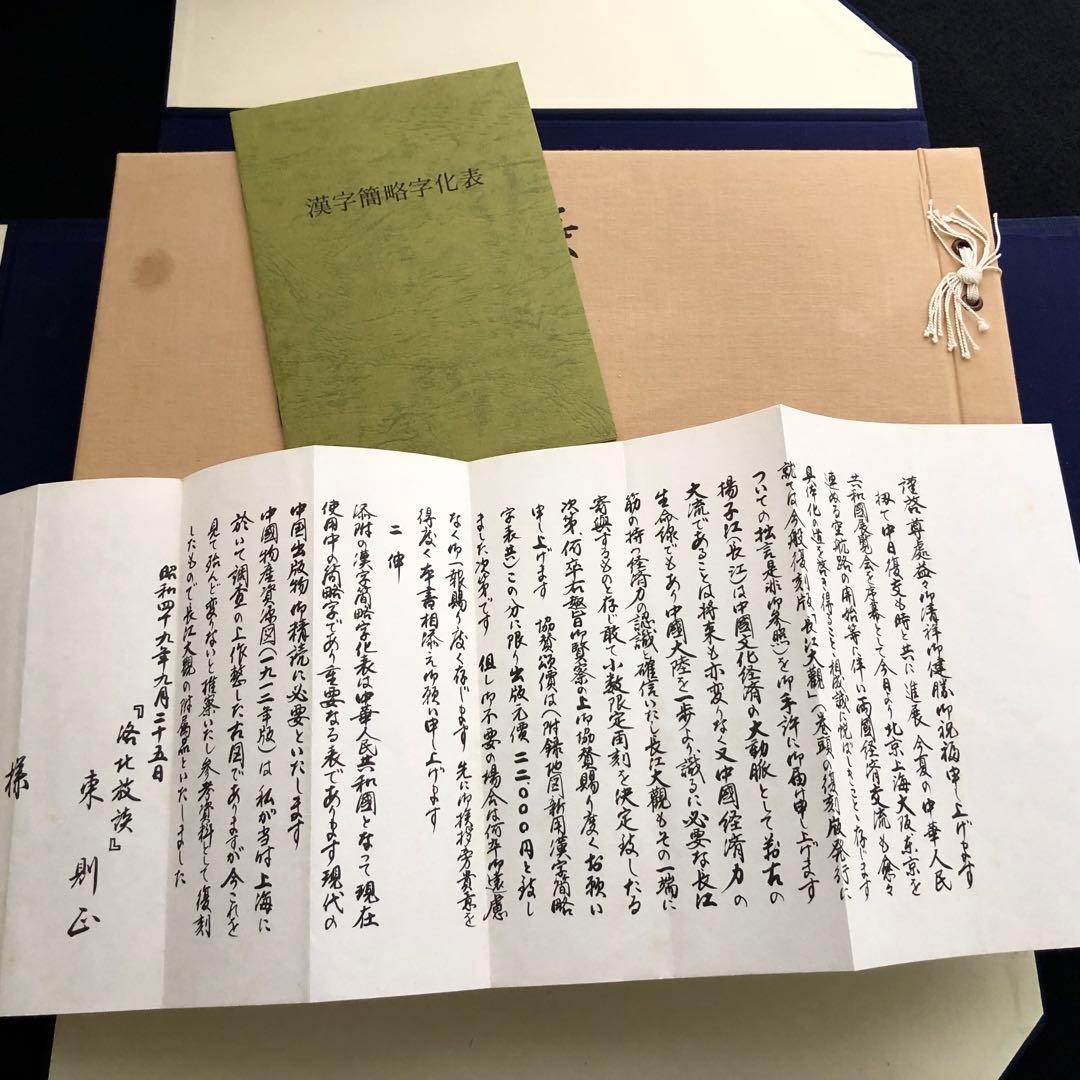 漢字簡略字化表
謹啓 尊慮益々御清祥御健勝御祝福申し上げます
扨て中日復交も時と共に進展 今夏の中華人民
共和國展覧会を序幕として今日より北京上海大阪東京を
連ぬる空航路の開始等に伴い両國経済交流も愈々
具体化の道を啓き得ること、相成誠に悦ばしきことゝ存じます
就ては今般復刻版「長江大觀」(巻頭の復刻版発行に
ついての拙言是非御参照)を御手許に御届け申し上げます
揚子江(長江)は中國文化経済の大動脈として萬古の
大流であることは将来も亦変りなく又中國経済力の
生命線でもあり中國大陸を一歩より識るに必要な長江
筋の持つ経済力の認識と確信いたし長江大觀もその一端に
寄與するものと存じ敢て小数限定再刻を決定致したる
次第、何卒右趣旨御賢察の上御協賛賜り度くお願い
申し上げます 協賛頒價は(附録地図新用漢字簡略
字表共)この分に限り出版元價一二〇〇〇円と致し
ました次第です 但し御不要の場合は何卒御遠慮
なく御一報賜り度く存じます 先に御挨拶旁貴意を
得度く本書相添え御願い申し上げます
二伸
添附の漢字簡略字化表は中華人民共和國となって現在
使用中の簡略字であり重要なる表であります現代の
中国出版物御精読に必要といたします
中國物産資源図(一九一二年版)は私が当时上海に
於いて調査の上作整した古図でありますが今これを
見て殆んど変りないと推察いたし参考資料として復刻
したもので長江大觀の附属品といたしました
昭和四十九年九月二十五日
『洛北放談』
東 則正
様